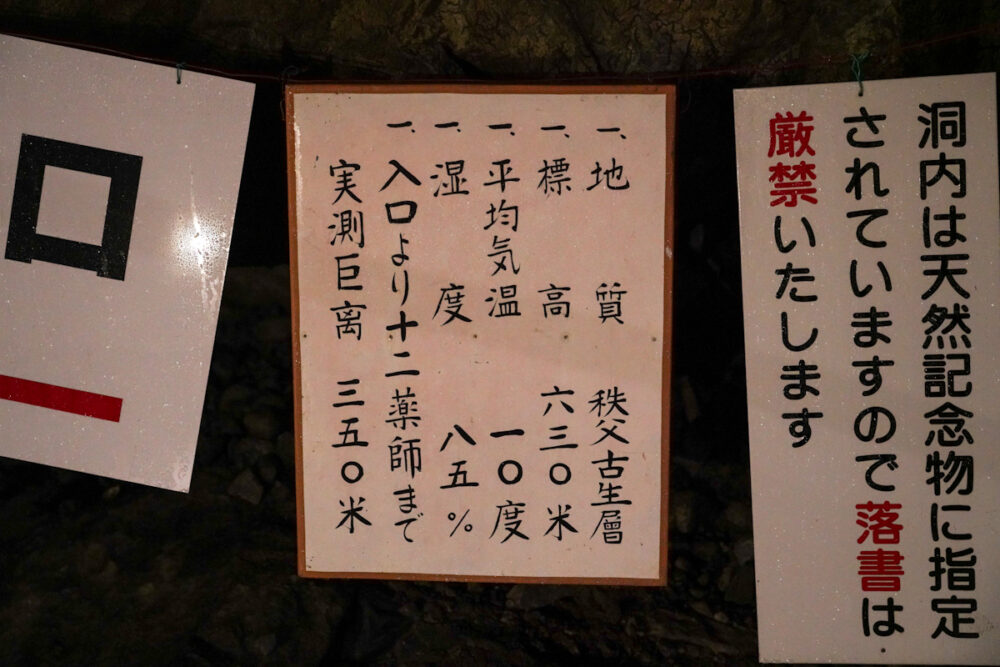 洞内は天然記念物に指定
されていますので落書は
厳禁いたします
一、地質 秩父古生層
一、標高 六三〇米
一、平均気温 一〇度
一、湿度 八五%
一、入口より十二薬師まで
実測巨离 三五〇米
口